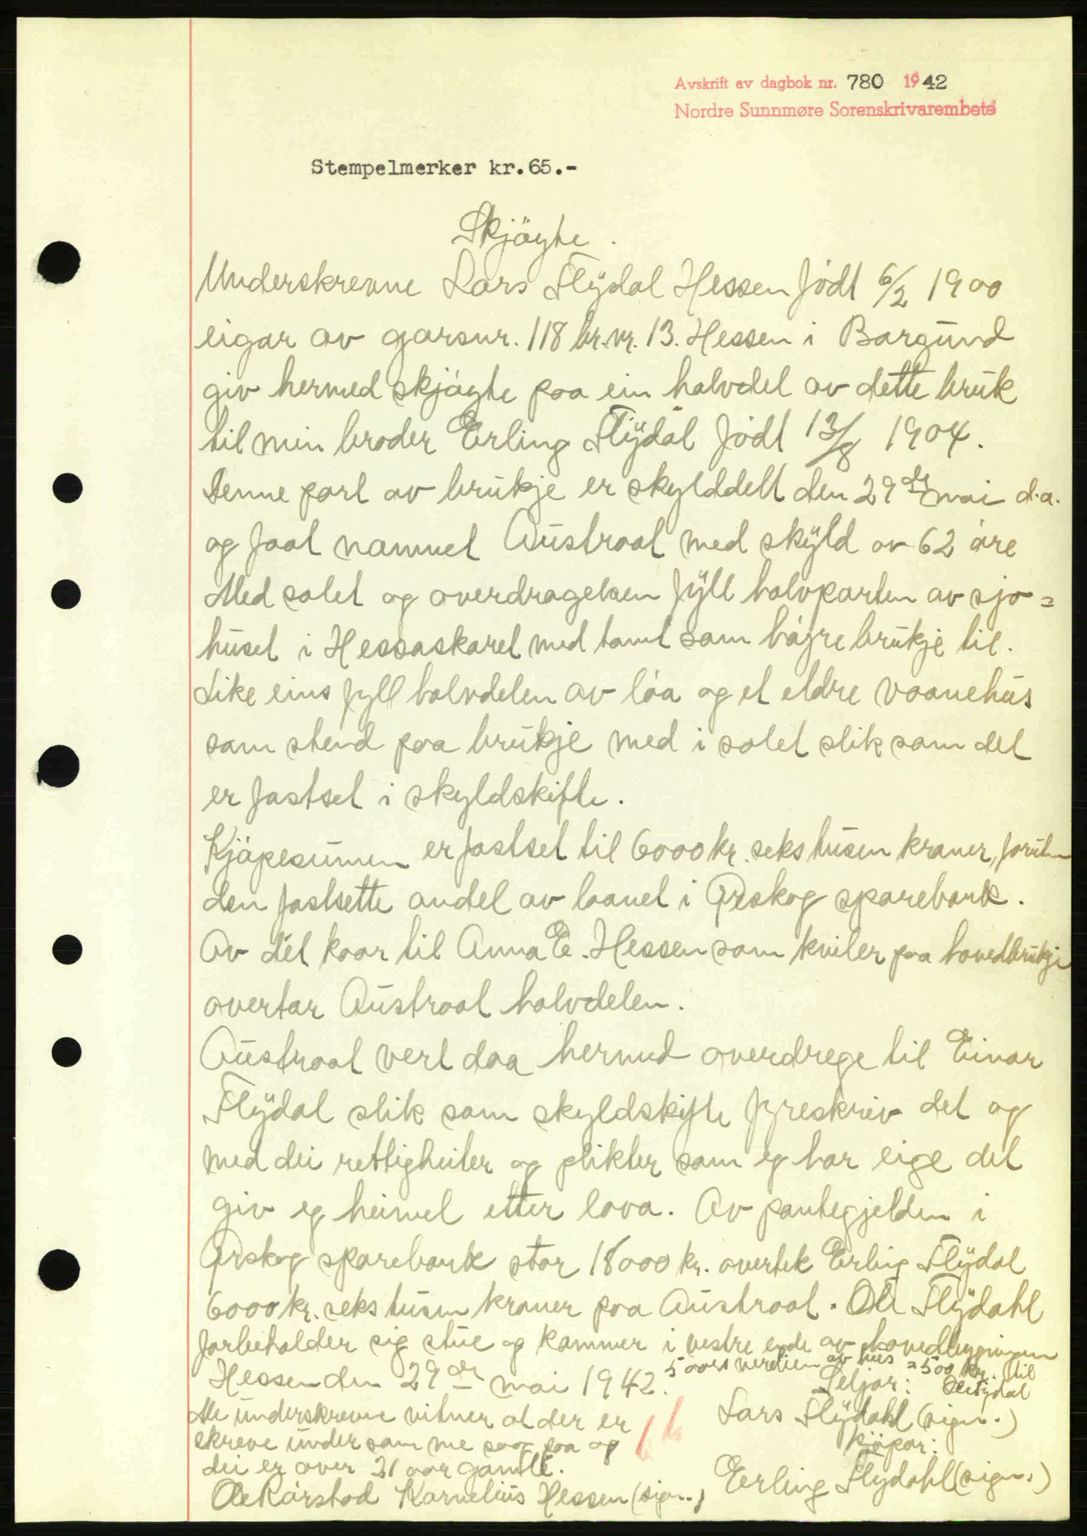 Avskrift av dagbok nr. 780 1942
Nordre Sunnmøre Sorenskrivarembete
Stempelmerker kr. 65.-
Skjöyte.
Underskrevne Lars Flÿdal Hessen født 6/2 1900
eigar av garsnr. 118 br.nr. 13. Hessen i Borgund
giv hermed skjöyte paa ein halvdel av dette bruk
til min broder Erling Flÿdal født 13/8 1904.
Denne part av brukje er skylddelt den 29de mai d.a.
og faat namnet Austraat med skÿld av 62 øre
Med salet og overdragelsen fÿll halvparten av sjo=
huset i Hessaskaret med tomt som høÿre brukje til.
Like eins fyll halvdelen av løa og et eldre vaanehus
som stend paa brukje med i salet slik som det
er fastset i skyldskifte.
Kjöpesumen er fastset til 6000 kr. seks tusen kroner, foruten
den fastsette andel av laanet i Ørskog sparebank.
Av det kaar til Anna E. Hessen som kviler paa hovedbrukje
overtar Austraat halvdelen.
Austraat vert daa hermed overdrege til Einar
Flÿdal slik som skyldskifte fyreskriv det og
med dei rettigheiter og plikter som eg har eige det
giv eg heimel etter lova. Av pantegjelden i
Ørskog sparebank stor 18000 kr. overtek Erling Flÿdal
6000 kr. seks tusen kroner paa Austraat. Ole Flÿdahl
forbeholder sig stue og kammer i vestre ende av hovedbygningen
5 aars verdien av hus = 500 kr. til
Ole Flydal
Hessen den 29de mai 1942.
Seljar:
Me underskrevne vitner at der er
Lars Flÿdahl (sign.)
skreve under som me saag paa og
Kjöpar:
dei er over 21 aar gamle.
Erling Flydahl (sign.)
Ole Kårstad Kornelius Hessen (sign.)